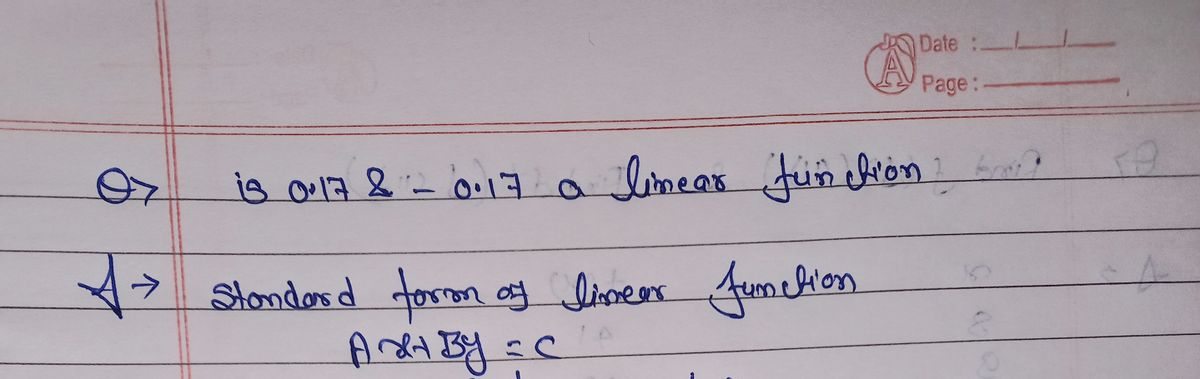 A
Date :
Page :
Q→ is 0.17 & - 0.17 a linear function
A→ Standard form of linear function
Ax+By = C